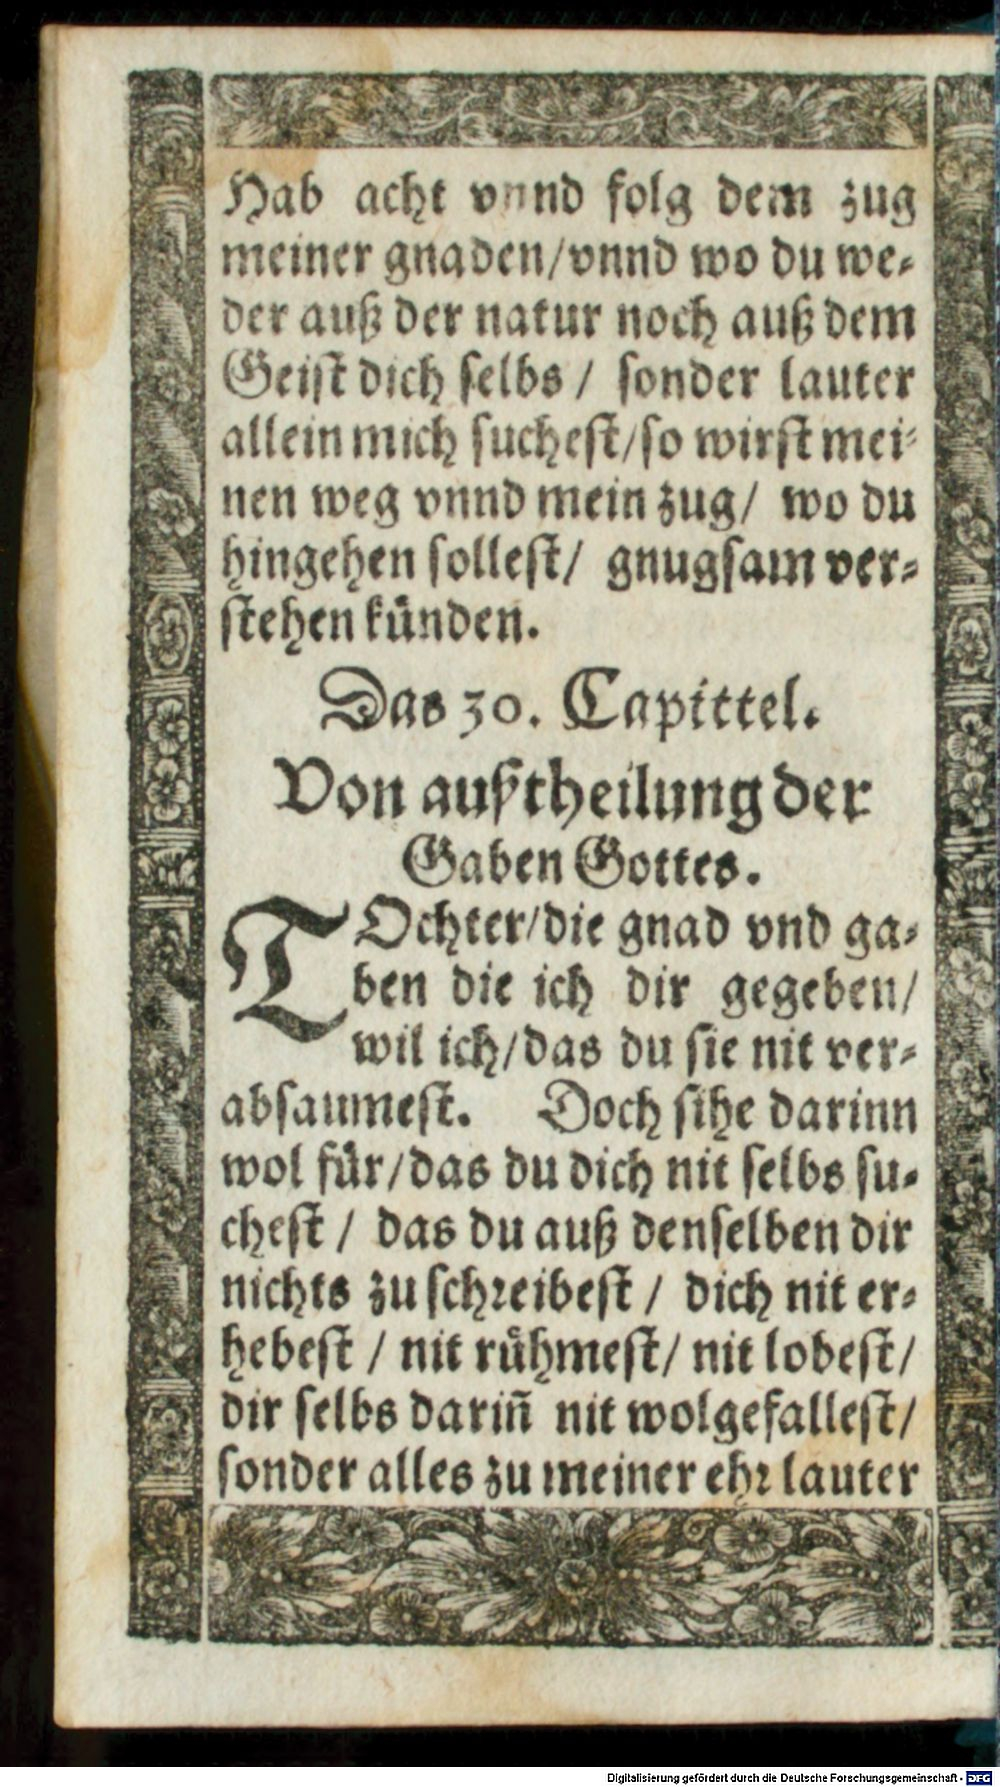 Hab acht vnnd folg dem zug
meiner gnaden/vnnd wo du we-
der auß der natur noch auß dem
Geist dich selbs / sonder lauter
allein mich suchest/so wirst mei-
nen weg vnnd mein zug/ wo du
hingehen sollest/ gnugsam ver-
stehen künden.
Das 30. Capittel.
Von außtheilung der
Gaben Gottes.
TOchter/die gnad vnd ga-
ben die ich dir gegeben/
wil ich/das du sie nit ver-
absaumest. Doch sihe darinn
wol für/das du dich nit selbs su-
chest / das du auß denselben dir
nichts zu schreibest / dich nit er-
hebest / nit rühmest/ nit lobest/
dir selbs dariñ nit wolgefallest/
sonder alles zu meiner ehr lauter
Digitalisierung gefördert durch die Deutsche Forschungsgemeinschaft - DFG